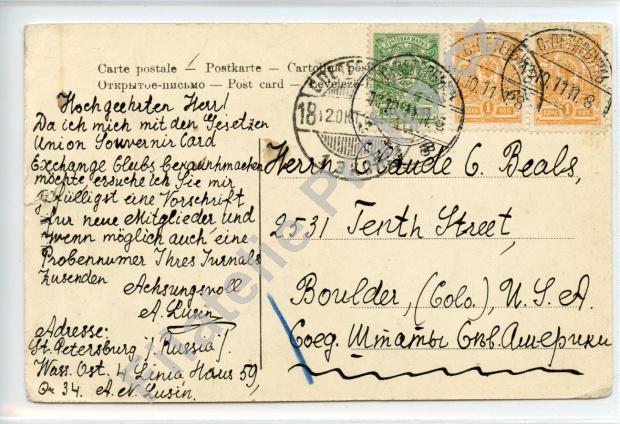 Carte postale — Postkarte — Cartolina
Открытое письмо — Post card —
Hochgeehrten Herr!
Da ich mich mit den Gesetzen
Union Souvernir Card
Exchange Clubs
möchte, ersuche ich Sie mir
gefülligst eine Vorschrift
für neue Mitglieder und
wenn möglich auch eine
Probennumer Ihres Jurnals
zusenden
Achsungsvoll
A. Lusin
Adresse:
St. Petersburg / Russia /.
Wass. Ost. 4 Linia Haus 59,
Qu 34. A. N. Lusin.
Herrn Claude C. Beals,
2531 Tenth Street,
Boulder, (Colo.), U.S.A.
Соед. Штаты Сѣв. Америки